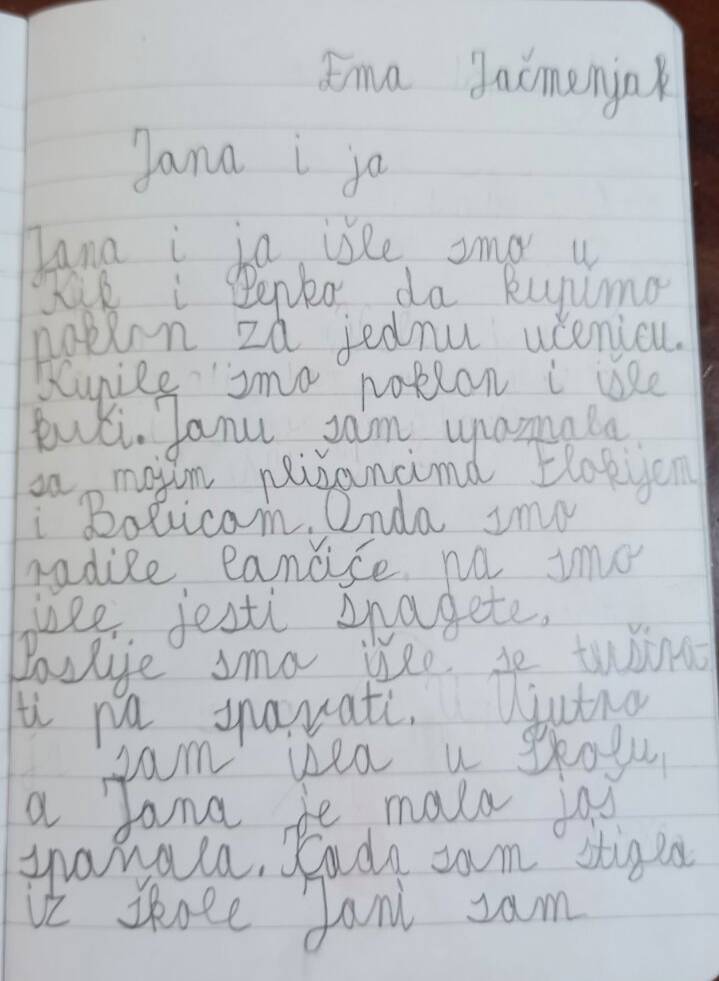 Ema Jačmenjak
Jana i ja
Jana i ja išle smo u
Kik i Pepko da kupimo
poklon za jednu učenicu.
Kupile smo poklon i išle
kući. Janu sam upoznala
sa mojim plišancima Flokijem
i Bolvicom. Onda smo
radile lančiće pa smo
išle jesti špagete.
Poslije smo išle se tušira-
ti pa spavati. Ujutro
sam išla u školu,
a Jana je malo još
spavala. Kada sam stigla
iz škole Jani sam